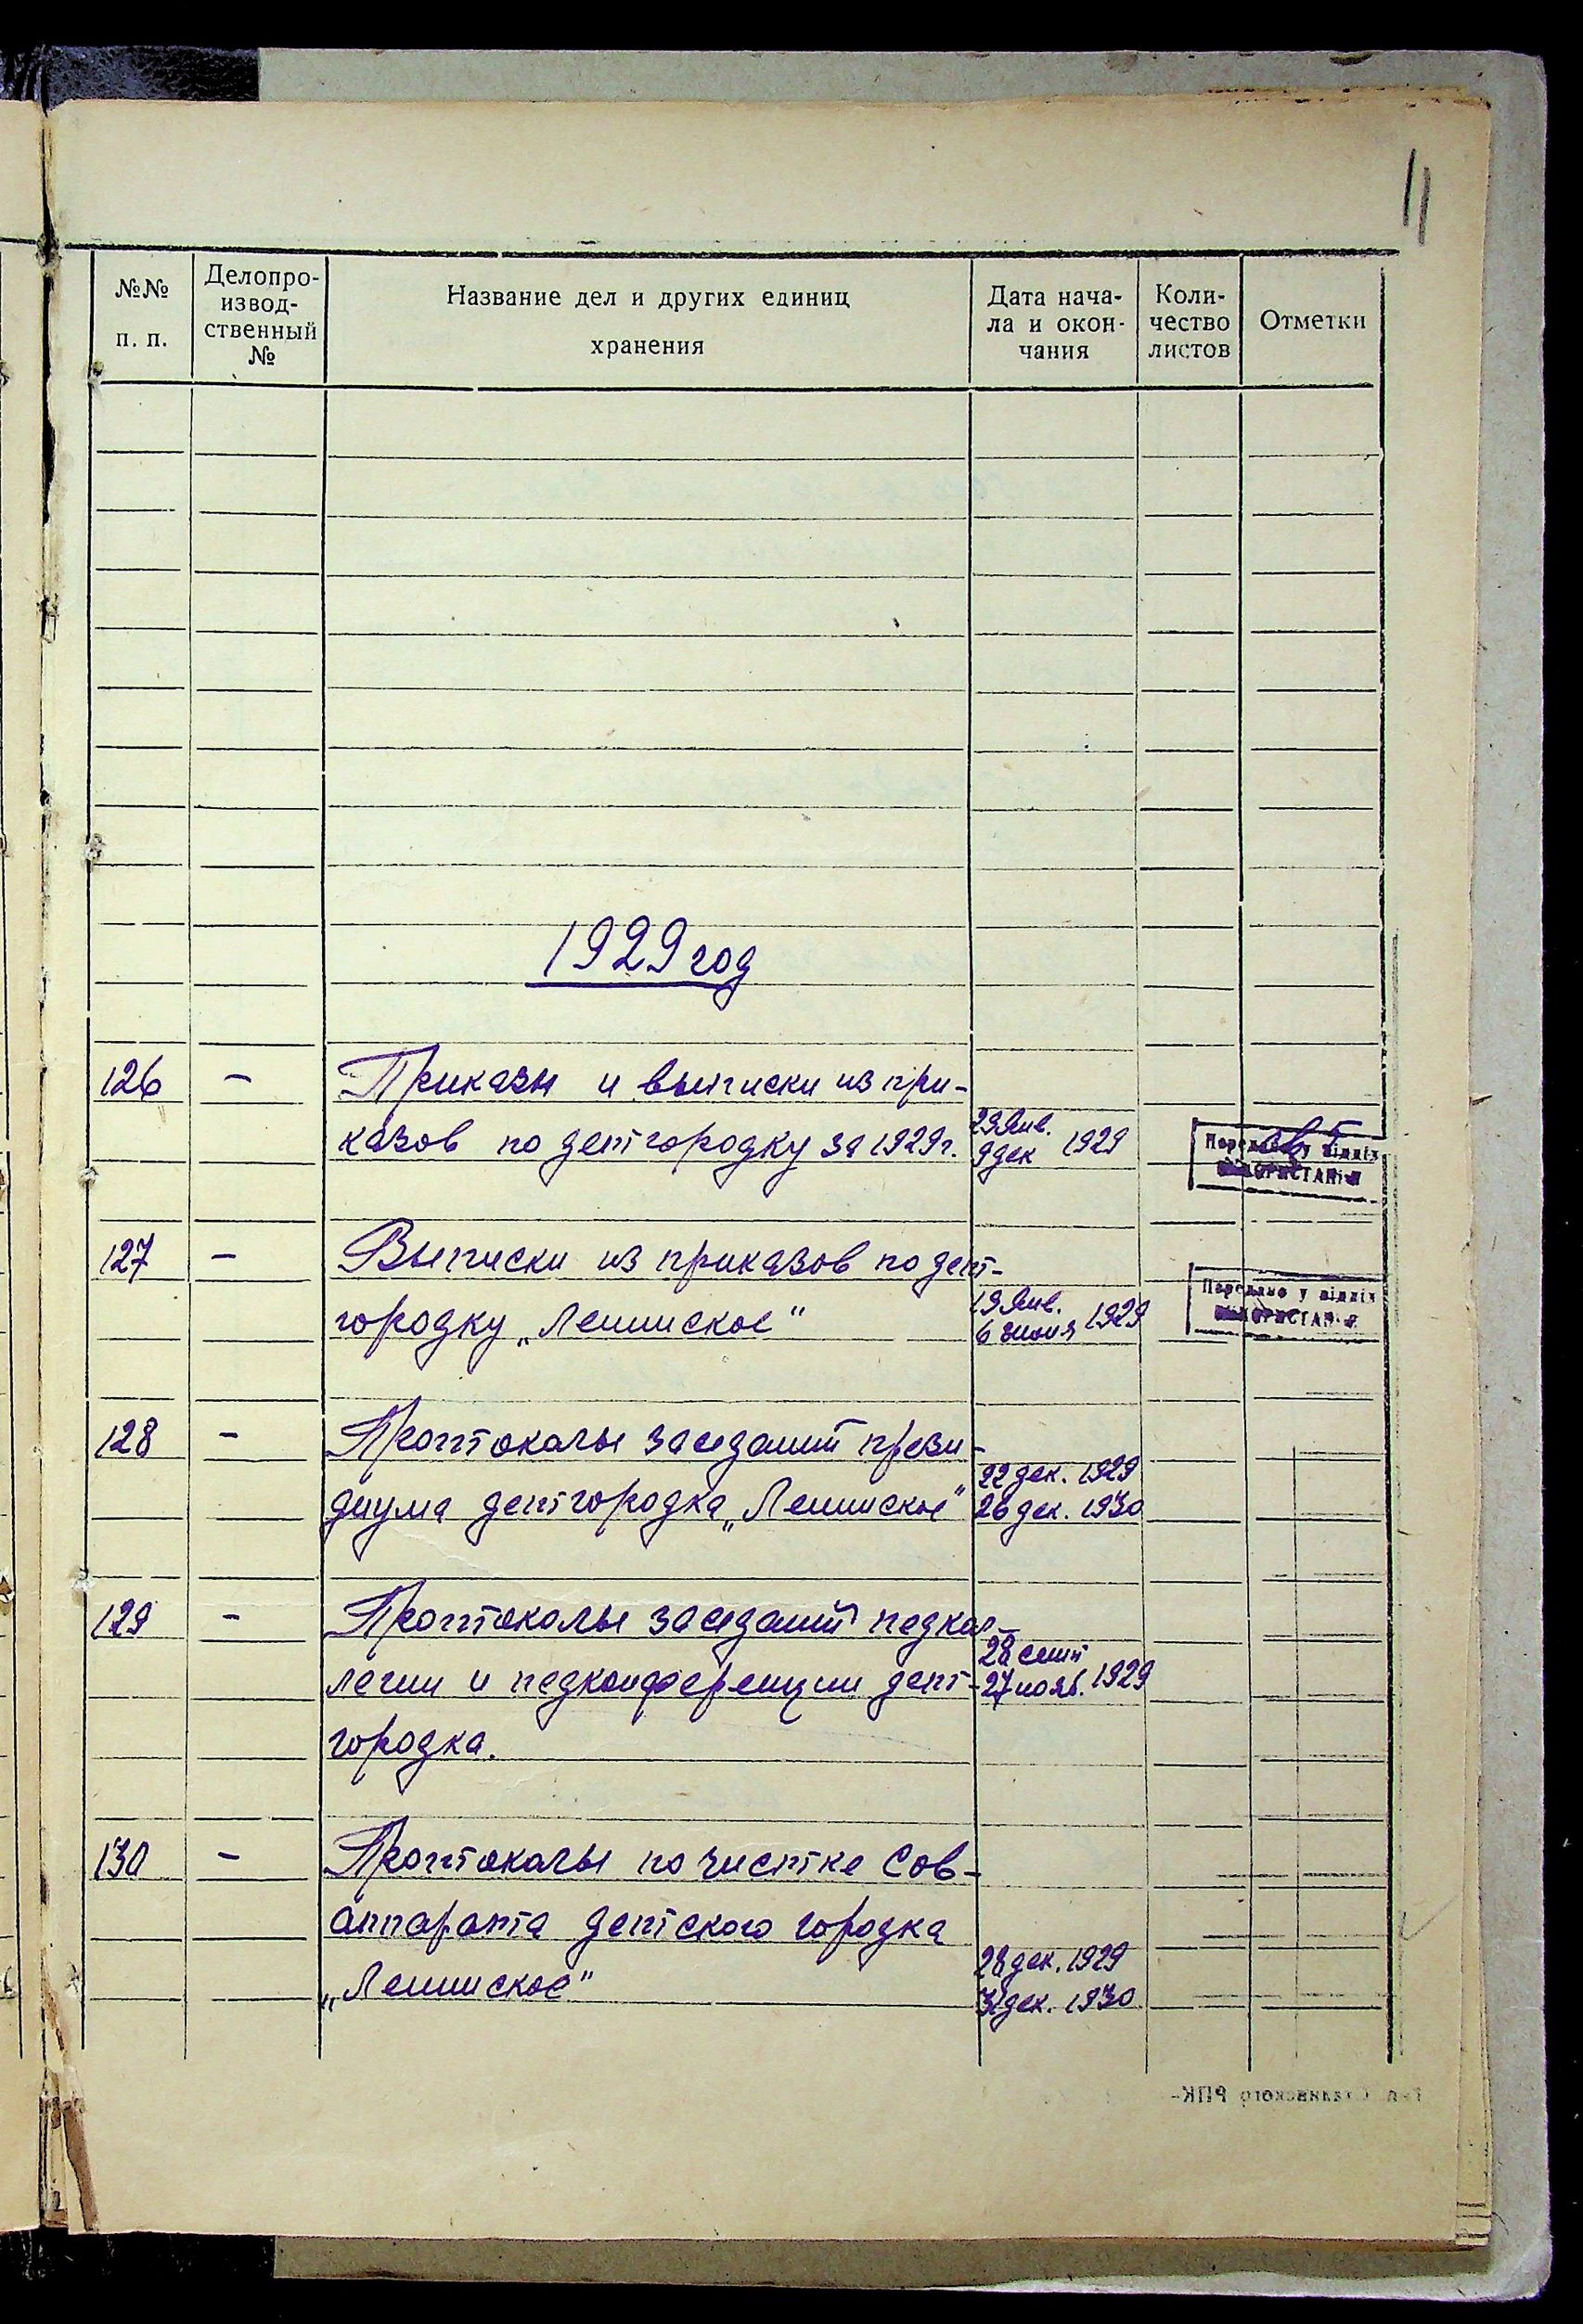 11
№№
п. п.
Делопро-
извод-
ственный
№
Название дел и других единиц
хранения
Дата нача-
ла и окон-
чания
Коли-
чество
листов
Отметки
1929 год
126 – Приказы и выписки из при-
казов по детгородку за 1929 г.
29 Янв.
9 дек 1929
Передано у відділ
127 – Выписки из приказов по дет-
городку „Ленинское"
19 Янв.
6 июня 1929
Передано у відділ
128 – Протоколы заседаний прези-
диума детгородка „Ленинское"
22 дек. 1929
26 дек. 1930
129 – Протоколы заседаний педкол-
легии и педконференции дет-
городка.
28 сент
27 нояб. 1929
130 – Протоколы по чистке Сов-
аппарата детского городка
„Ленинское"
28 дек. 1929
31 дек. 1930